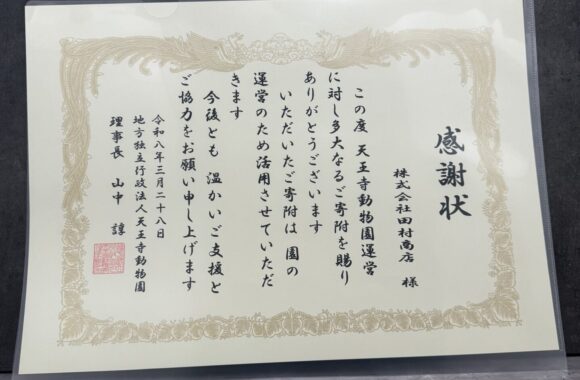 感謝状
株式会社田村商店 様
この度 天王寺動物園運営
に対し多大なるご寄附を賜り
ありがとうございます
いただいたご寄附は 園の
運営のため活用させていただ
きます
今後とも 温かいご支援と
ご協力をお願い申し上げます
令和八年三月二十八日
地方独立行政法人天王寺動物園
理事長 山中 諄